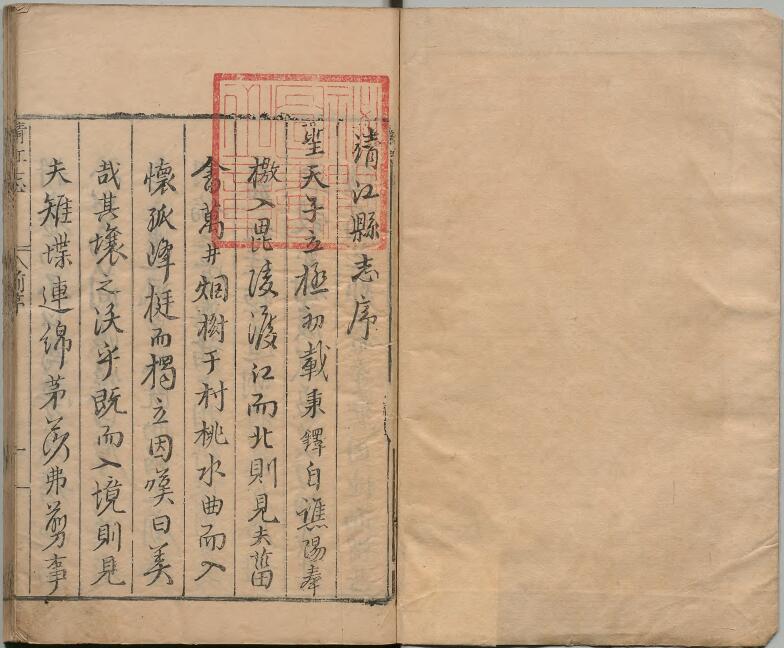 靖江縣志序
聖天子立極初載秉鐸自譙陽奉
檄入毘陵渡江而北則見夫菑
畬萬井烟樹千村桃水曲而入
懷孤峰挺而獨立因嘆曰美
哉其壤之沃乎既而入境則見
夫雉堞連綿茅茨弗剪事
靖江志 前序 一